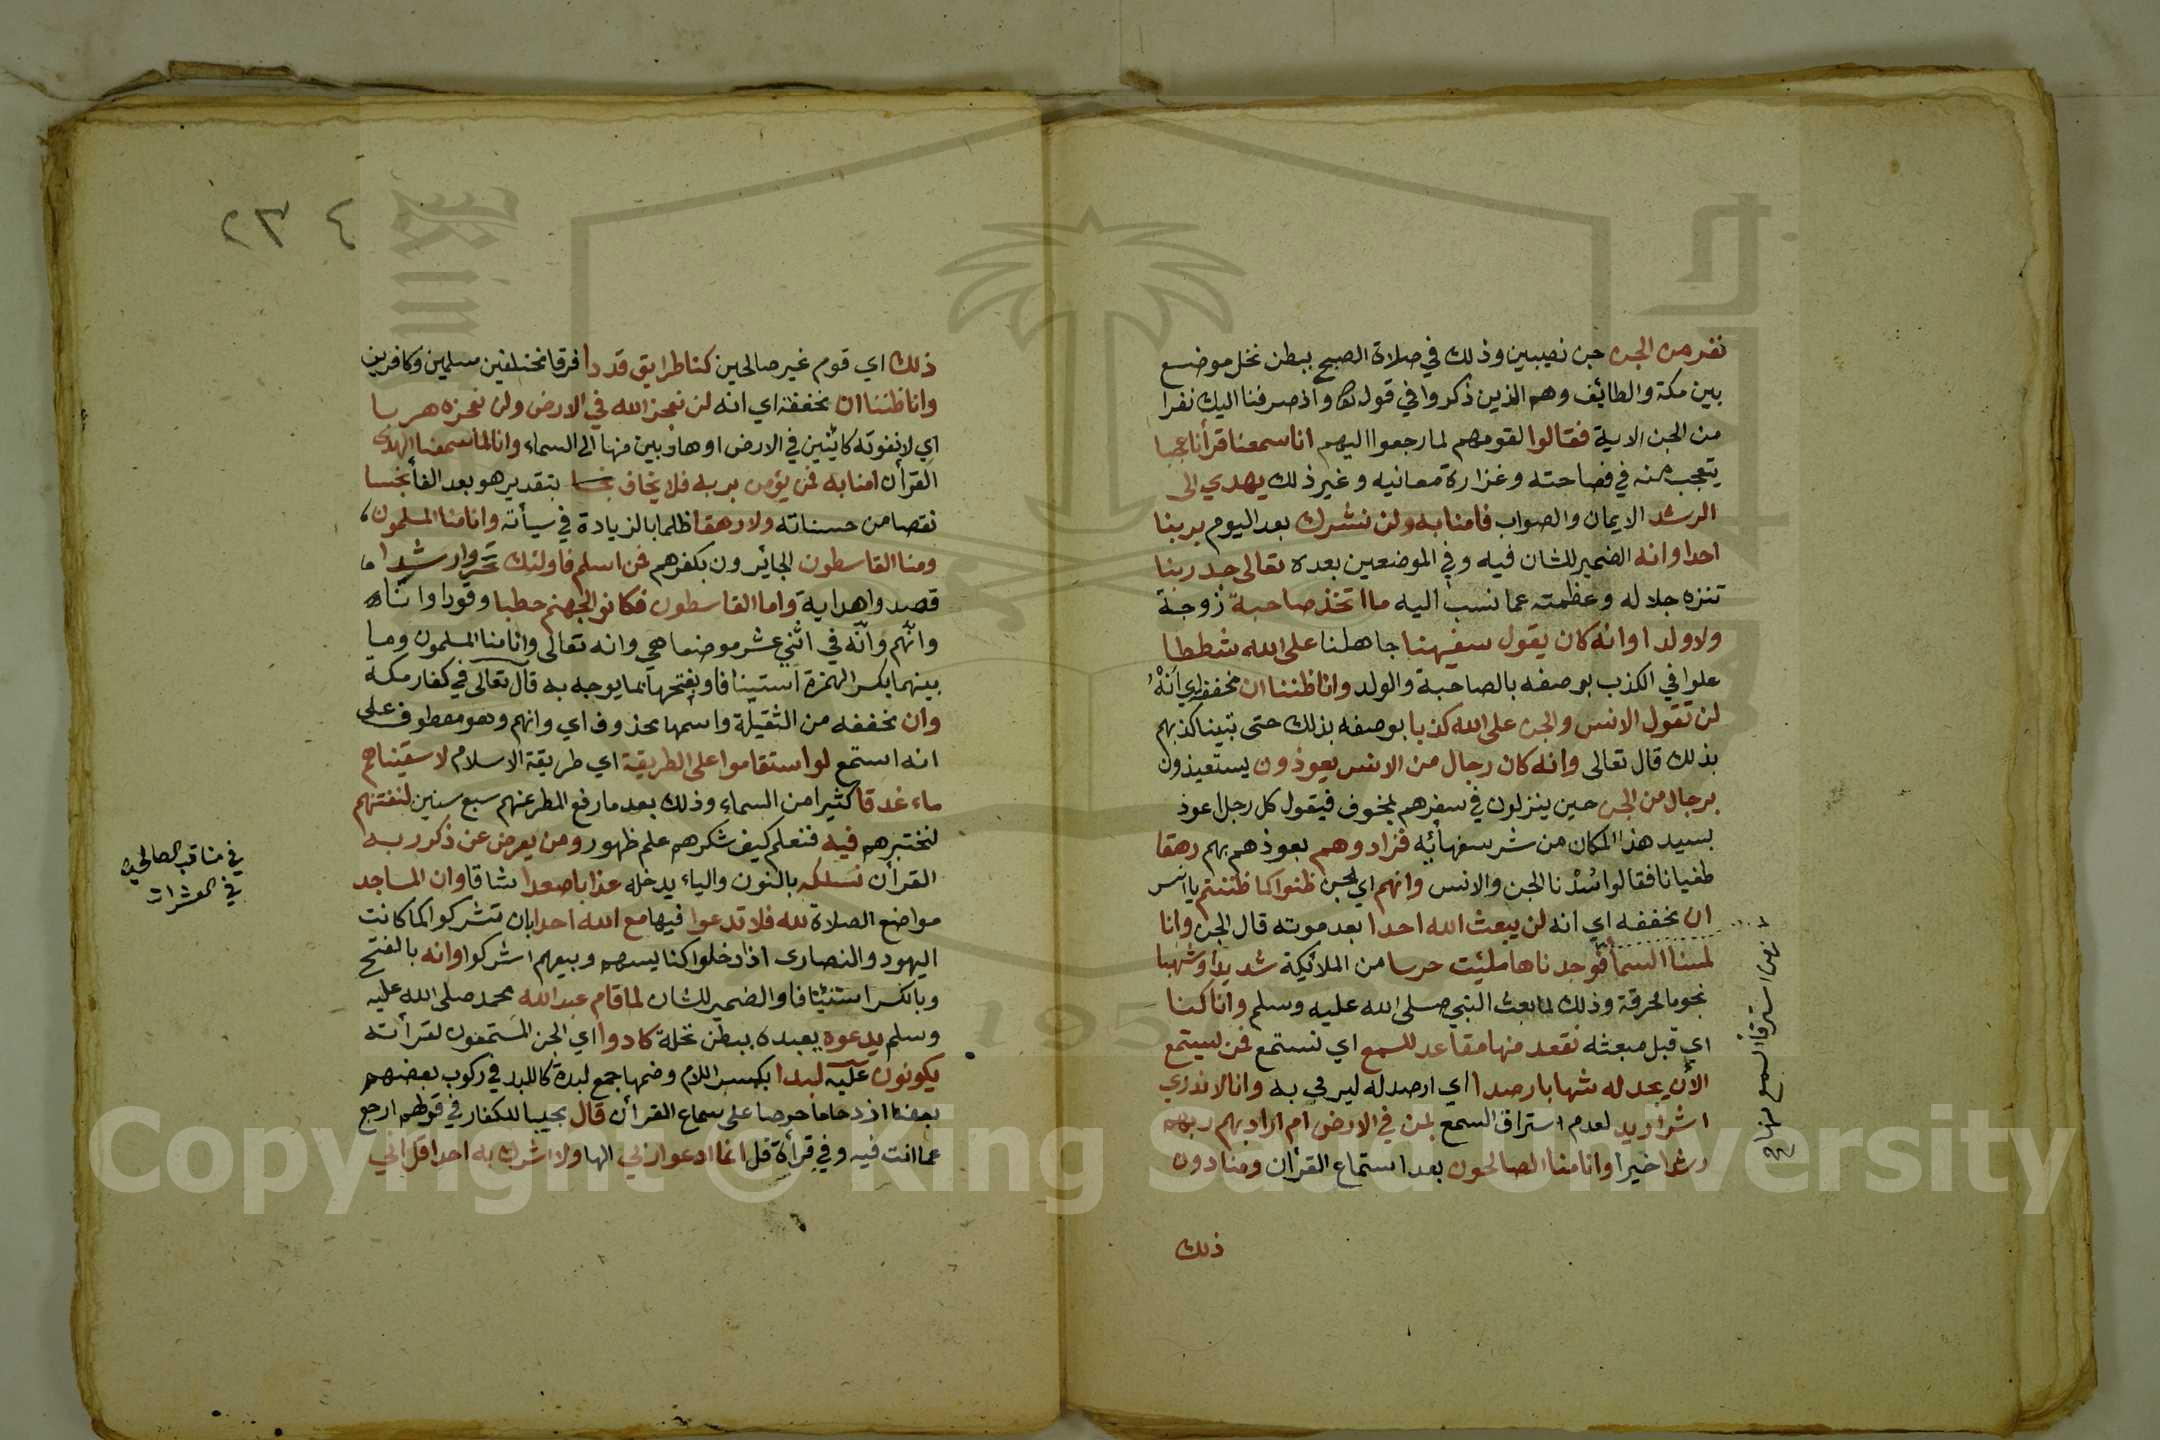 نفر من الجن جن نصيبين وذلك في صلاة الصبح ببطن نخل موضع
بين مكة والطائف وهم الذين ذكروا في قوله تعا واذ صرفنا اليك نفرا
من الجن الاية فقالوا لقومهم لما رجعوا اليهم انا سمعنا قرأنا عجبا
يتعجب منه في فصاحته وغزارة معانيه وغير ذلك يهدي الى
الرشد الايمان والصواب فامنا به ولن نشرك بعد اليوم بربنا
احدا وانه الضمير للشان فيه وفي الموضعين بعده تعالى جد ربنا
تنزه جلاله وعظمته عما نسب اليه ما اتخذ صاحبة زوجة
ولا ولدا وانه كان يقول سفيهنا جاهلنا على الله شططا
علوا في الكذب بوصفه بالصاحبة والولد وانا ظننا ان مخففة اي انه
لن تقول الانس والجن على الله كذبا بوصفه بذلك حتى تبينا كذبهم
بذلك قال تعالى وانه كان رجال من الانس يعوذون يستعيذون
برجال من الجن حين ينزلون في سفرهم بمخوف فيقول كل رجل اعوذ
بسيد هذا المكان من شر سفهائه فزادوهم بعوذهم بهم رهقا
طغيانا فقالوا سُدْنا الجن والانس وانهم اي الجن ظنوا كما ظننتم يا انس
ان مخففه اي انه لن يبعث الله احدا بعد موته قال الجن وانا
لمسنا السمأ فوجدناها ملئت حرسا من الملائكة شديدا وشهبا
نجوما محرقة وذلك لما بعث النبي صلى الله عليه وسلم وانا كنا
اي قبل مبعثه نقعد منها مقاعد للسمع اي نستمع فمن يستمع
الأن يجد له شهابا رصدا اي ارصد له ليرمي به وانا لا ندري
اشر اريد لعدم استراق السمع بمن في الارض ام اراد بهم ربهم
رشدا خيرا وانا منا الصالحون بعد استماع القرأن ومنا دون
ذلك
ذلك اي قوم غير صالحين كنا طرايق قددا فرقا مختلفين مسلمين وكافرين
وانا ظننا ان مخففة اي انه لن نعجز الله في الارض ولن نعجزه هربا
اي لا نفوته كائنين في الارض او هاربين منها الى السماء وانا لما سمعنا الهدى
القرأن امنا به فمن يؤمن بربه فلا يخاف بخسا بتقدير هو بعد الفأ بخسا
نقصا من حسناته ولا رهقا ظلما بالزيادة في سيأته وانا منا المسلمون
ومنا القاسطون الجائرون بكفرهم فمن اسلم فاولئك تحروا رشدا
قصدوا هداية واما القاسطون فكانوا لجهنم حطبا وقودا وانا
وانهم وانه في اثني عشر موضعا هي وانه تعالى وانا منا المسلمون وما
بينهما بكسر الهمزة استينافا وبفتحها بما يوجه به قال تعالى في كفار مكة
وان مخففه من الثقيلة واسمها محذوف اي وانهم وهو معطوف على
انه استمع لو استقاموا على الطريقة اي طريقة الاسلام لاسقيناهم
ماء غدقا كثيرا من السماء وذلك بعد ما رفع المطر عنهم سبع سنين لنفتنهم
لنختبرهم فيه فنعلم كيف شكرهم علم ظهور ومن يعرض عن ذكر ربه
القرأن نسلكه بالنون والياء يدخله عذابا صعدا شاقا وان المساجد
مواضع الصلاة لله فلا تدعوا فيها مع الله احدا بان تشركوا كما كانت
اليهود والنصارى اذا دخلوا كنايسهم وبيعهم اشركوا وانه بالفتح
وبالكسر استئنافا والضمير للشان لما قام عبد الله محمد صلى الله عليه
وسلم يدعوه يعبده ببطن نخلة كادوا اي الجن المستمعون لقرأته
يكونون عليه لبدا بكسر اللام وضمها جمع لبدة كاللبد في ركوب بعضهم
بعضا ازدحاما حرصا على سماع القرأن قال مجيبا للكفار في قولهم ارجع
عما انت فيه وفي قرأة قل انما ادعوا ربي الها ولا اشرك به احدا قل اني
٢٣ ٤
في مناقب الصالحين
في العشرات
Copyright © King Saud University
1957